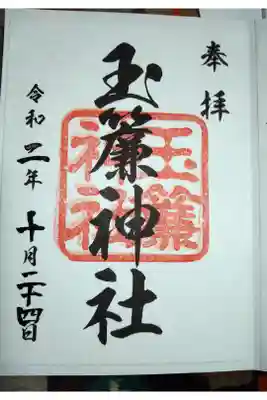 奉拝
玉簾神社
玉簾
神社
令和二年
十月二十四日